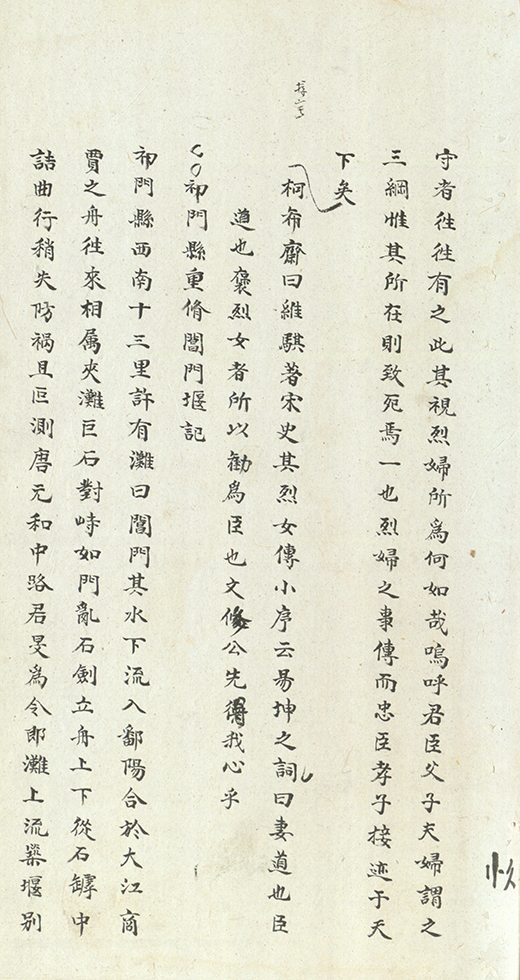 守者往往有之此其視烈婦所為何如哉嗚呼君臣父子夫婦謂之
三綱惟其所在則致死焉一也烈婦之事傳而忠臣孝子接迹于天
下矣
柯希齋曰維騏著宋史其烈女傳小序云易坤之詞曰妻道也臣
道也褒烈女者所以勸為臣也文脩公先得我心乎
祁門縣重脩閶門堰記
祁門縣西南十三里許有灘曰閶門其水下流入鄱陽合於大江商
賈之舟往來相属夾灘巨石對峙如門亂石劍立舟上下從石罅中
詰曲行稍失防禍且叵測唐元和中路君旻為令即灘上流築堰别